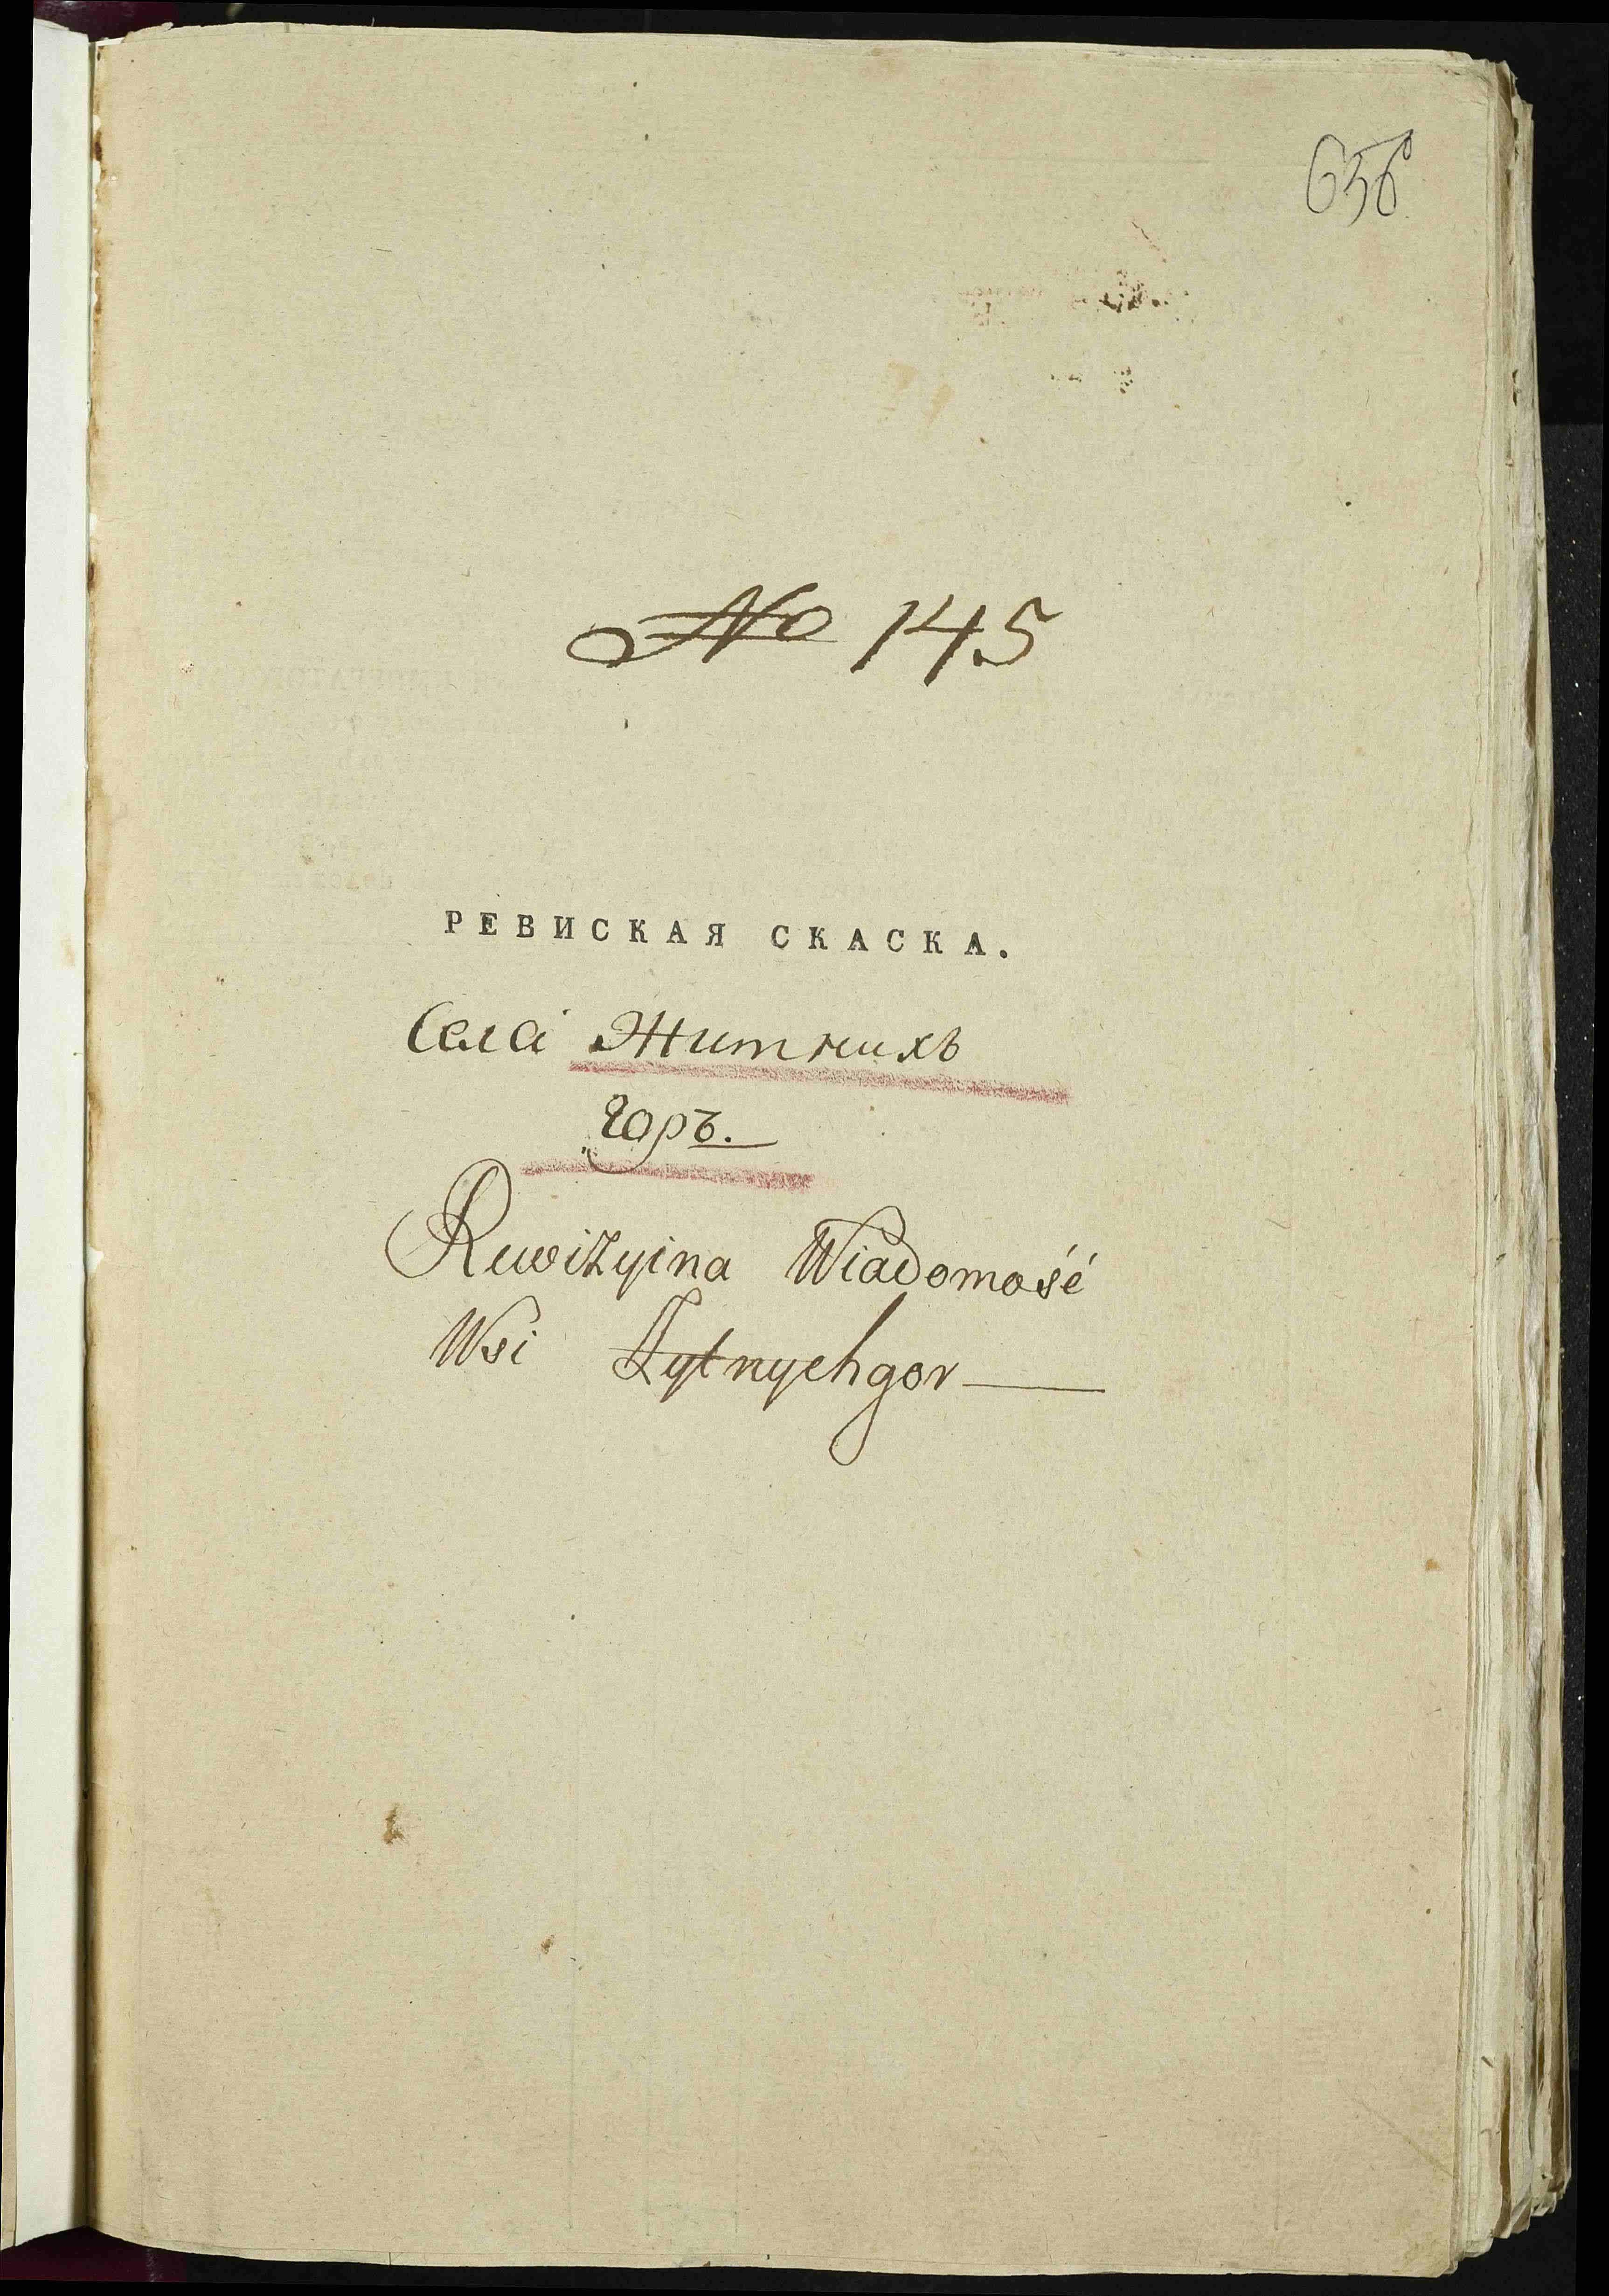 656
№ 145
РЕВИСКАЯ СКАСКА.
Села Житнихъ
горъ.
Rewizyina Wiadomość
Wsi Zytnychgor